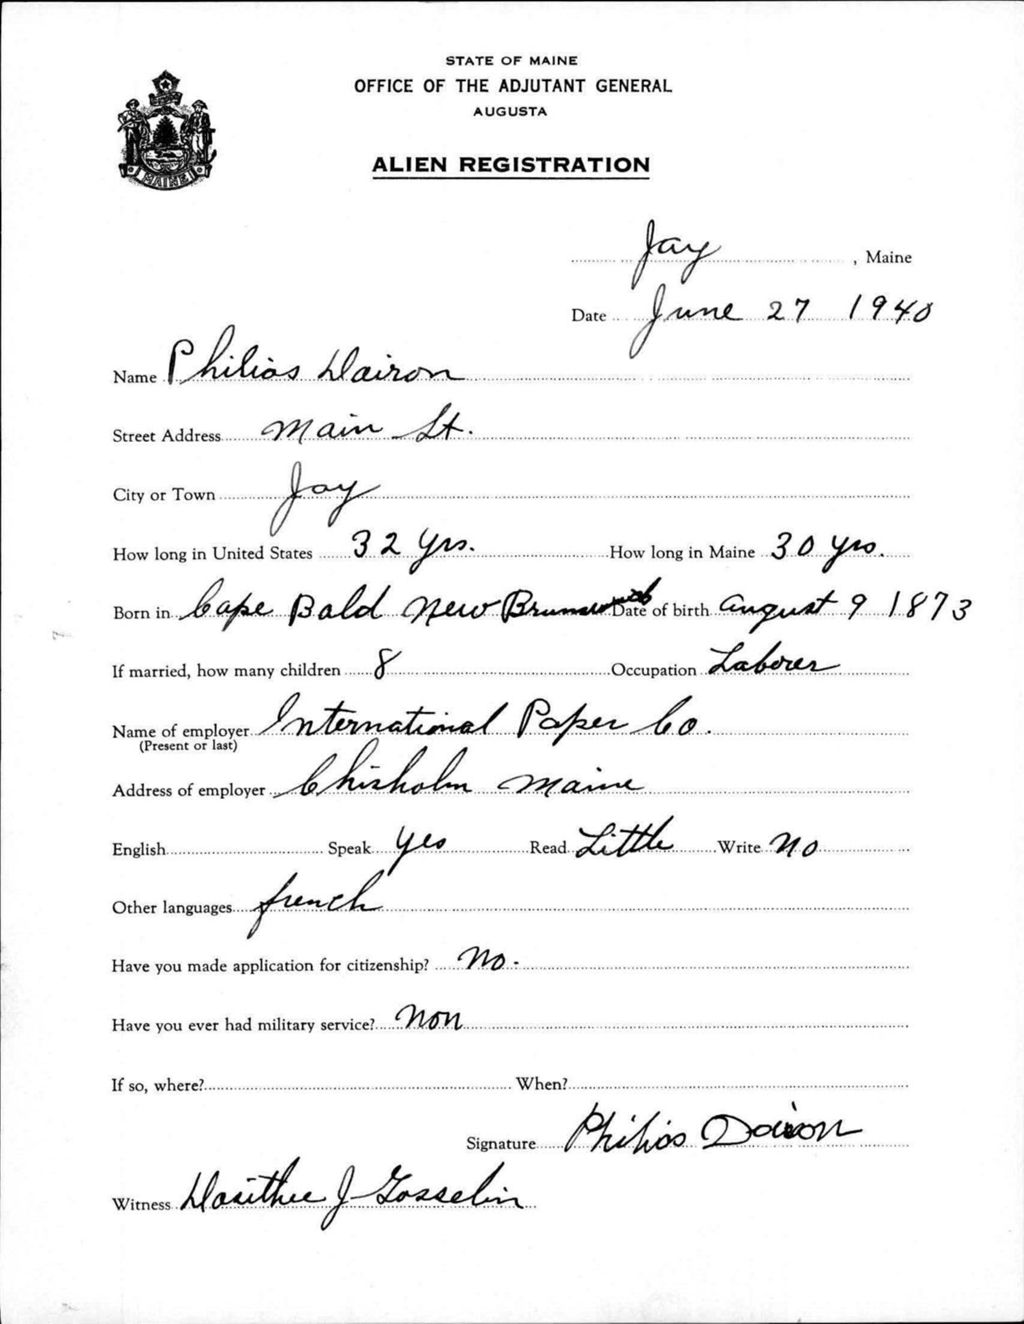 STATE OF MAINE
OFFICE OF THE ADJUTANT GENERAL
AUGUSTA
ALIEN REGISTRATION
MAINE
Jay, Maine
Date June 27 1940
Name Philias Dairon
Street Address Main St.
City or Town Jay
How long in United States 32 yrs. How long in Maine 30 yrs.
Born in Cape Bald New Brunswick Date of birth August 9 1873
If married, how many children 8 Occupation Laborer
Name of employer International Paper Co.
(Present or last)
Address of employer Chisholm Maine
English Speak Yes Read Little Write No
Other languages french
Have you made application for citizenship? No.
Have you ever had military service? Non
If so, where? When?
Signature Philias Doiron
Witness Dosithee J Gosselin